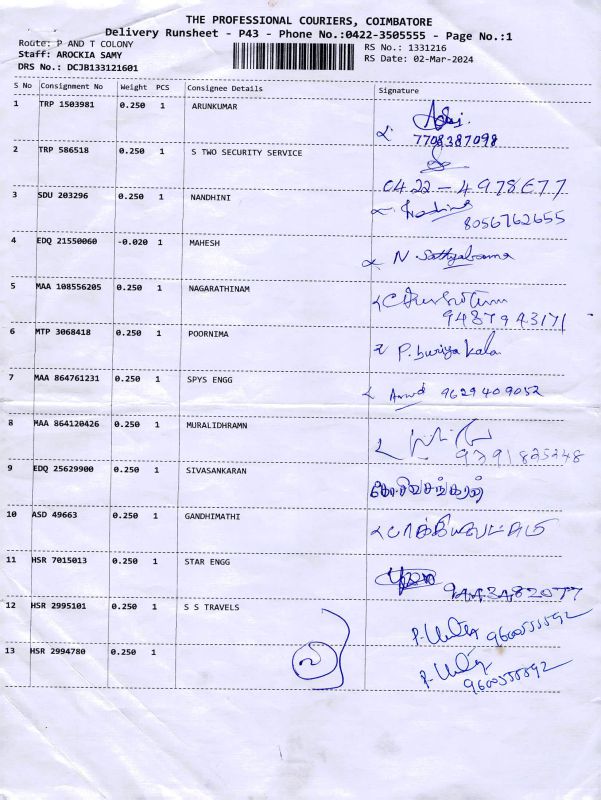 THE PROFESSIONAL COURIERS, COIMBATORE
Delivery Runsheet - P43 - Phone No.:0422-3505555 - Page No.:1
Route: P AND T COLONY RS No.: 1331216
Staff: AROCKIA SAMY RS Date: 02-Mar-2024
DRS No.: DCJB133121601
S No Consignment No Weight PCS Consignee Details Signature
1 TRP 1503981 0.250 1 ARUNKUMAR
7708387098
2 TRP 586518 0.250 1 S TWO SECURITY SERVICE
0422-4978677
3 SDU 203296 0.250 1 NANDHINI
8056762655
4 EDQ 21550060 -0.020 1 MAHESH N Sathyabama
5 MAA 108556205 0.250 1 NAGARATHINAM
9487943171
6 MTP 3068418 0.250 1 POORNIMA P. Suriya kala
7 MAA 864761231 0.250 1 SPYS ENGG 9629409052
8 MAA 864120426 0.250 1 MURALIDHRAMN
9791825248
9 EDQ 25629900 0.250 1 SIVASANKARAN கோ.சிவசங்கரன்
10 ASD 49663 0.250 1 GANDHIMATHI
11 HSR 7015013 0.250 1 STAR ENGG
9443482077
12 HSR 2995101 0.250 1 S S TRAVELS 9600555592
13 HSR 2994780 0.250 1
9600555592